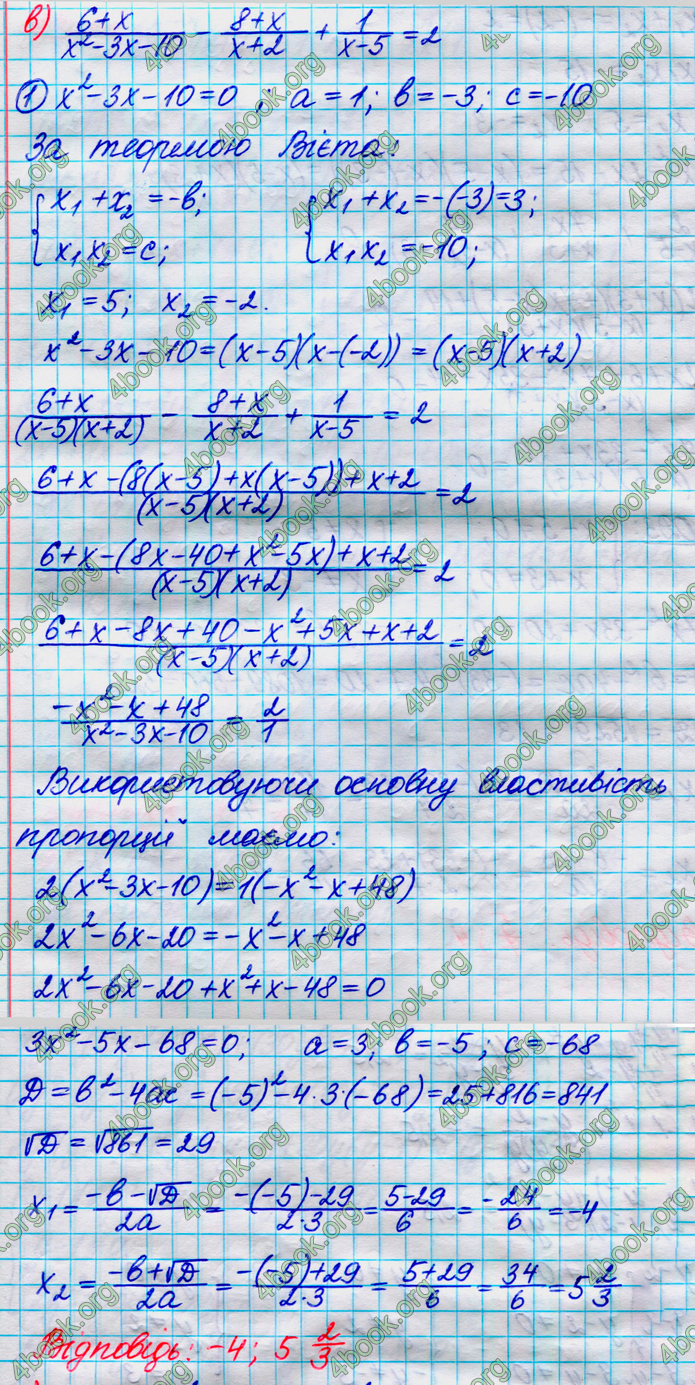 в) (6+x)/(x²-3x-10) - (8+x)/(x+2) + 1/(x-5) = 2
① x²-3x-10=0 ; a=1; в=-3; c=-10
За теоремою Вієта:
{ x₁+x₂=-в; { x₁+x₂=-(-3)=3;
x₁x₂=c; x₁x₂=-10;
x₁=5; x₂=-2.
x²-3x-10=(x-5)(x-(-2))=(x-5)(x+2)
(6+x)/((x-5)(x+2)) - (8+x)/(x+2) + 1/(x-5) = 2
(6+x-(8(x-5)+x(x-5))+x+2)/((x-5)(x+2)) = 2
(6+x-(8x-40+x²-5x)+x+2)/((x-5)(x+2)) = 2
(6+x-8x+40-x²+5x+x+2)/((x-5)(x+2)) = 2
(-x²-x+48)/(x²-3x-10) = 2/1
Використовуючи основну властивість
пропорцій маємо:
2(x²-3x-10)=1(-x²-x+48)
2x²-6x-20=-x²-x+48
2x²-6x-20+x²+x-48=0
3x²-5x-68=0; a=3; в=-5; c=-68
D=в²-4ac=(-5)²-4·3·(-68)=25+816=841
√D=√861=29
x₁=(-в-√D)/(2a)=(-(-5)-29)/(2·3)=(5-29)/6=-24/6=-4
x₂=(-в+√D)/(2a)=(-(-5)+29)/(2·3)=(5+29)/6=34/6=5 2/3
Відповідь: -4; 5 2/3
4book.org